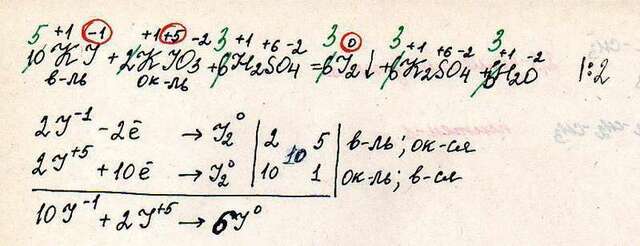 5 +1 -1 +1 +5 -2 3 +1 +6 -2 3 0 3 +1 +6 -2 3 +1 -2
10KJ + 2KJO3 + 6H2SO4 = 6J2↓ + 6K2SO4 + 6H2O | :2
в-ль ок-ль
2J⁻¹ - 2ē → J2⁰ | 2 | 5 | в-ль; ок-ся
10
2J⁺⁵ + 10ē → J2⁰ | 10 | 1 | ок-ль; в-ся
10J⁻¹ + 2J⁺⁵ → 6J⁰